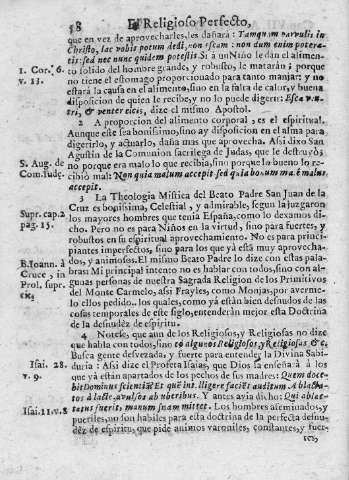 58 El Religioso Perfecto,
que en vez de aprovecharles, les dañara: Tamquam parvulis in
Christo, lac vobis potum dedi, non escam: non dum enim potera-
tis: sed nec nunc quidem potestis. Si a un Niño le dan el alimen-
1. Cor. 6. to solido del hombre grande, y robusto, le matarán; porque
v. 13. no tiene el estomago proporcionado para tanto manjar: y no
estará la causa en el alimento, sino en la falta de calor, y buena
disposicion de quien le recibe, y no lo puede digerir: Esca ven-
tri, & venter escis, dize el mismo Apostol.
2 A proporcion del alimento corporal, es el espiritual.
Aunque este sea bonissimo, sino ay disposicion en el alma para
digerirlo, y actuarlo, daña mas que aprovecha. Assi dixo San
Agustin de la Comunion sacrilega de Judas, que le destruyò
S. Aug. de no porque era malo lo que recibia, sino porque lo bueno lo re-
Com. Judę. cibió mal: Non quia malum accepit sed quia bonum male malus
accepit.
3 La Theologia Mistica del Beato Padre San Juan de la
Cruz es bonissima, Celestial, y admirable, segun la juzgaron
Supr. cap. 2 los mayores hombres que tenia España, como lo dexamos di-
pag. 15. cho. Pero no es para Niños en la virtud, sino para fuertes, y
robustos en su espiritual aprovechamiento. No es para princi-
piantes imperfectos, sino para los que yá està muy aprovecha-
B. Ioann. à dos, y animosos. El mismo Beato Padre lo dize con estas pala-
Cruce, in bras: Mi principal intento no es hablar con todos, sino con al-
Prol. supr. gunas personas de nuestra Sagrada Religion de los Primitivos
cit. del Monte Carmelo, assi Frayles, como Monjas, por averme-
lo ellos pedido.. los quales, como yà están bien desnudos de las
cosas temporales de este siglo, entenderàn mejor esta Doctrina
de la desnudèz de espiritu.
4 Notese, que aun de los Religiosos, y Religiosas no dize
que habla con todos, sino cō algunos Religiosos, y Religiosas &c.
Busca gente desvezada, y fuerte para entender la Divina Sabi-
Isai. 28. duria: Assi dixo el Profeta Isaias, que Dios la enseñarà à los
v. 9. que yà están apartados de los pechos de sus madres: Quem doce-
bit Dominus scientiā? Et què intelligere faciet auditum? Ablacta-
tos à lacte, avulsos ab uberibus. Y antes avia dicho: Qui ablac-
Isai. 11. v. 8 tatus fuerit, manum suam mittet. Los hombres afeminados, y
pueriles, no son habiles para esta doctrina de la perfecta desnu-
dèz de espiritu, que pide animos varoniles, constantes, y fuer-